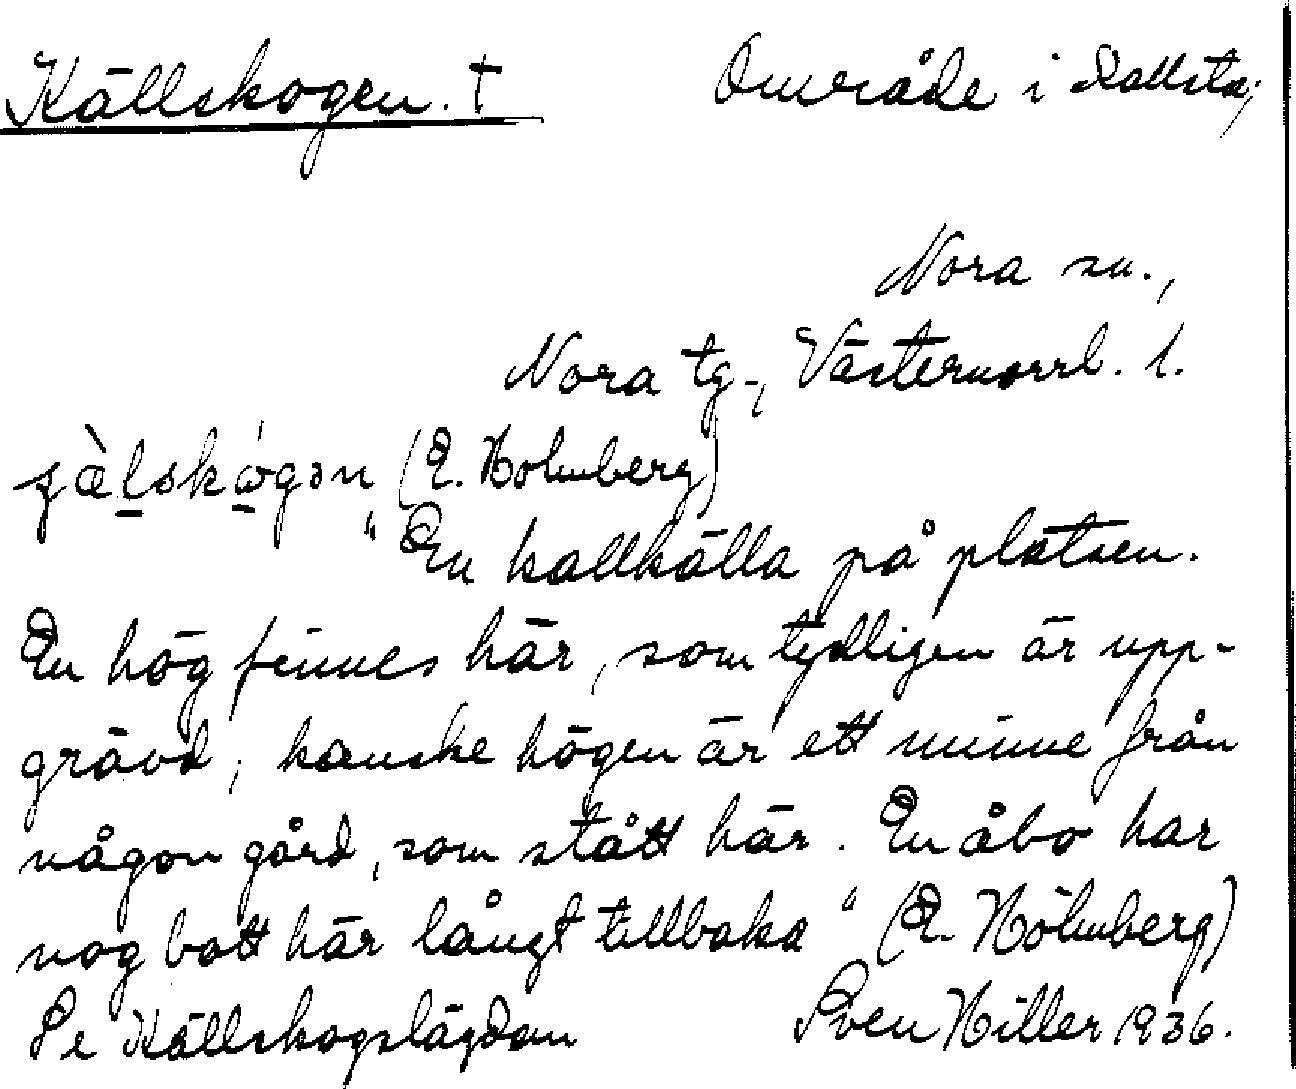 Källskogen. † Område i Rallsta;
Nora sn.,
Nora tg., Västernorrl. l.
(E. Holmberg)
"En kallkälla på platsen.
En hög finnes här, som tydligen är upp-
grävd, kanske högen är ett minne från
någon gård, som stått här. En åbo har
nog bott här långt tillbaka" (E. Holmberg)
Se Källskogslägdan Sven Hiller 1936.